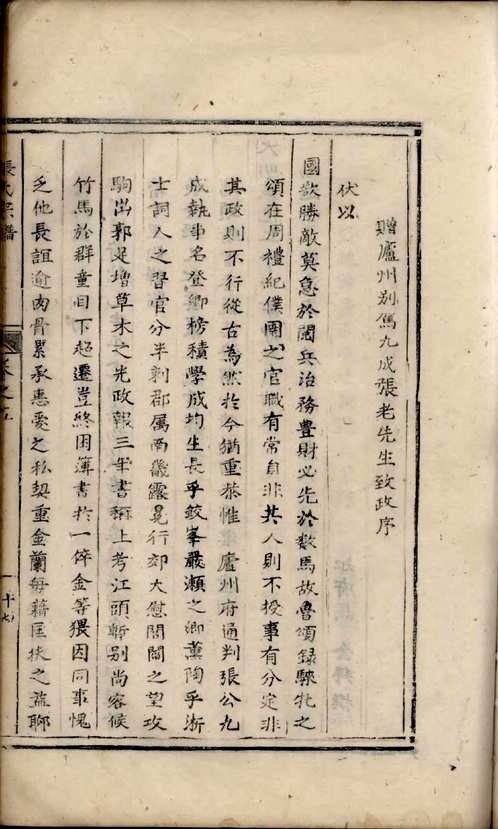 贈廬州别駕九成張老先生致政序
伏以
國欲勝敵莫急於閱兵治務豊財必先於數馬故魯頌録騋牝之
頌在周禮紀僕圉之官職有常自非其人則不授事有分定非
其政則不行從古為然扵今猶重恭惟廬州府通判張公九
成執事名登鄉榜積學成均生長乎鈠峯嚴瀬之鄉薫陶乎浙
士詞人之習官分半刺郡属南畿露冕行郊大慰閭閻之望攻
駒出郭足增草木之光政報三年書稱上考江頭暫别尚容候
竹馬於群童目下超遷豈終困簿書扵一倅金等猥因同事愧
乏他長誼逾肉骨累承惠愛之私契重金蘭每藉匡扶之益聊
張氏宗譜
卷之五
十七